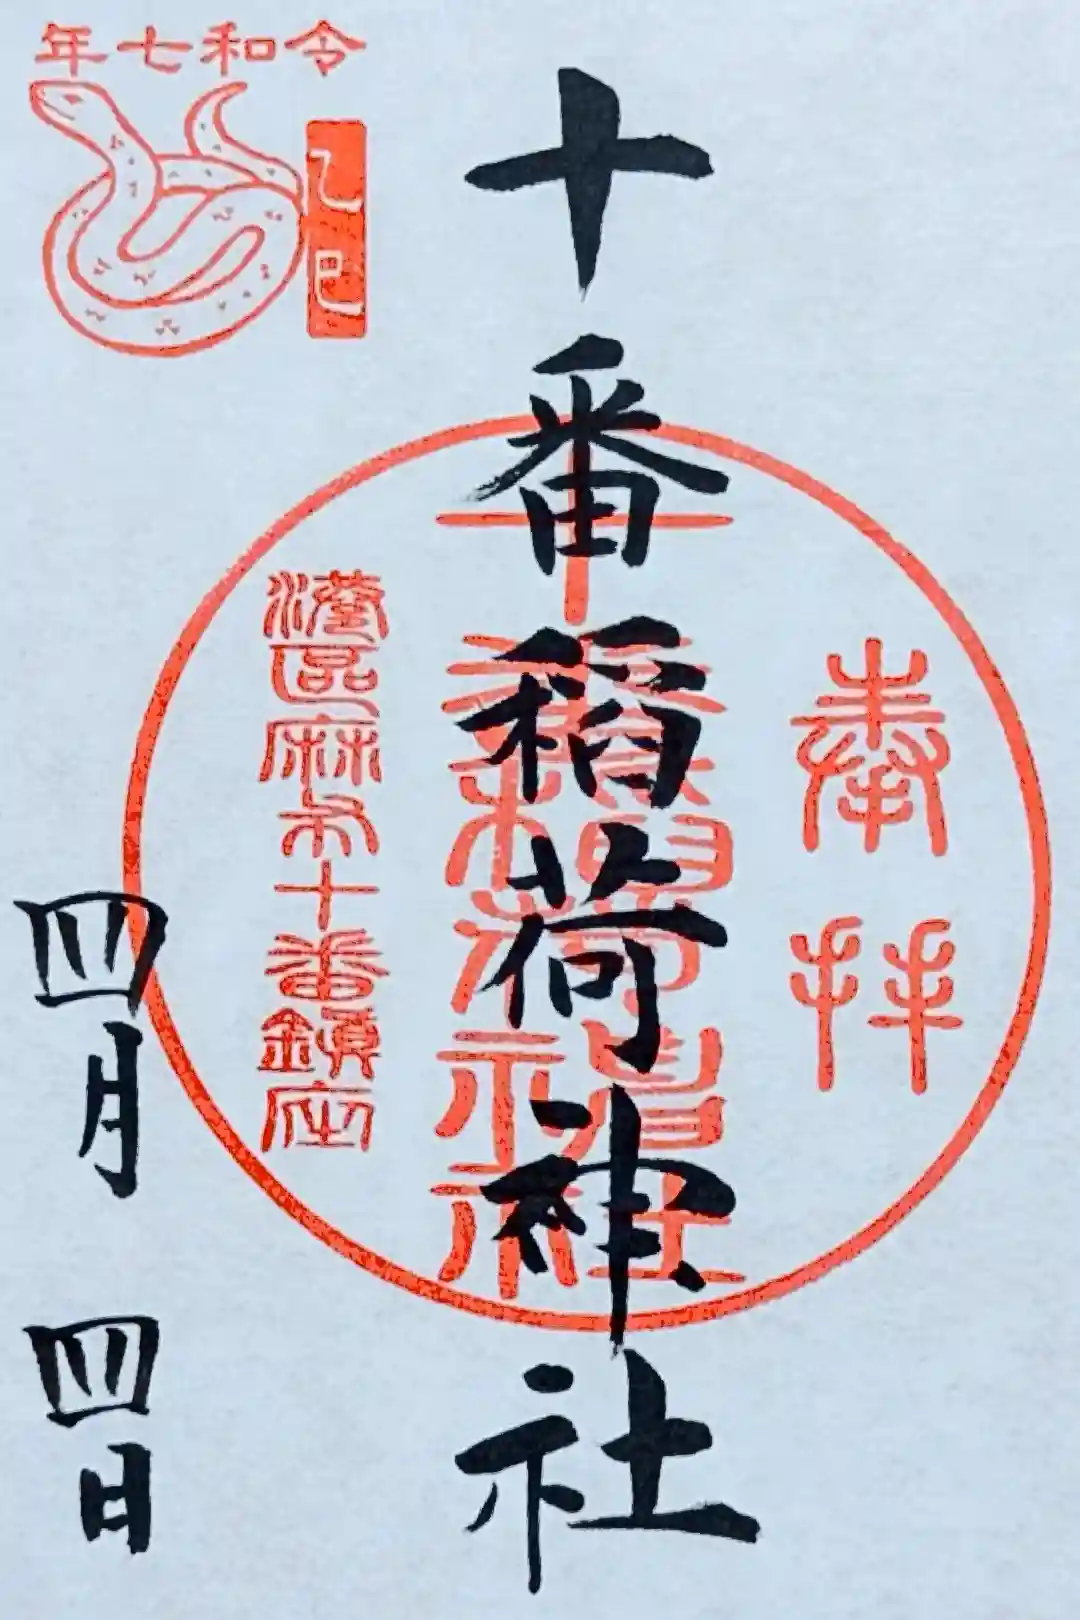 令和七年
乙巳
奉拝
十番稲荷神社
十番稲荷神社
港区麻布十番鎮座
四月四日